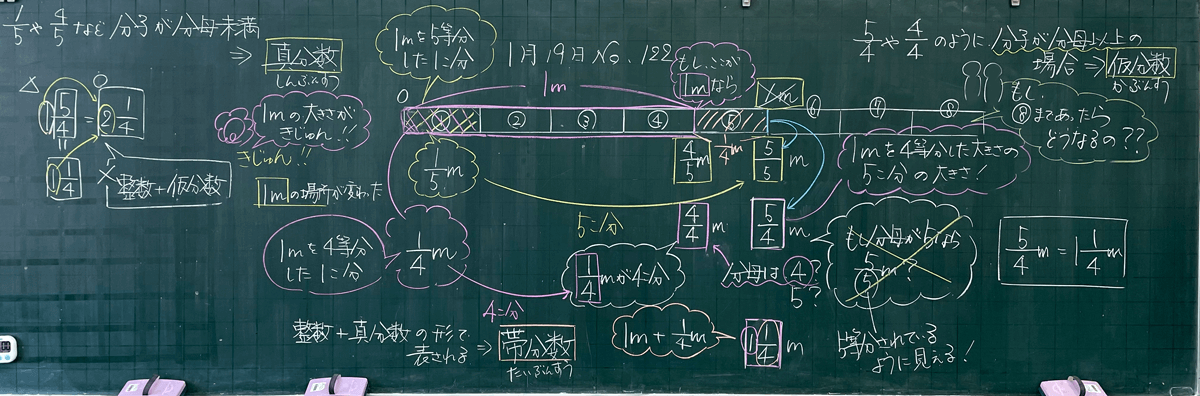 1/5や4/5など分子が分母未満
⇒ 真分数
しんぶんすう
1mを5等分
した1こ分
1月19日No.122
もし、ここが
1mなら
5/4や4/4のように分子が分母以上の
場合⇒仮分数
かぶんすう
1m
0
① ② ③ ④ ⑤ ⑥ ⑦ ⑧
もし、
⑧まであったら
どうなるの??
△ 1 5/4 = 2 1/4
=
1 1/4
整数+仮分数
1mの大きさが
きじゅん!!
きじゅん!!
1mの場所が変わった
1/5m
4/5m
1/4m
5/5m
1mを4等分した大きさの
5こ分の大きさ!
5こ分
4/4m
5/4m
1mを4等分
した1こ分
1/4m
1/4mが4こ分
4こ分
分母は4?
5?
もし分母が5なら
5/5m?
5等分されている
ように見える!
5/4m=1 1/4m
整数+真分数の形で
表される⇒帯分数
たいぶんすう
1m+1/4m
1 1/4m